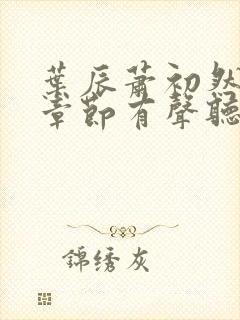 葉辰蕭初然
章節有聲聽
錦绣灰